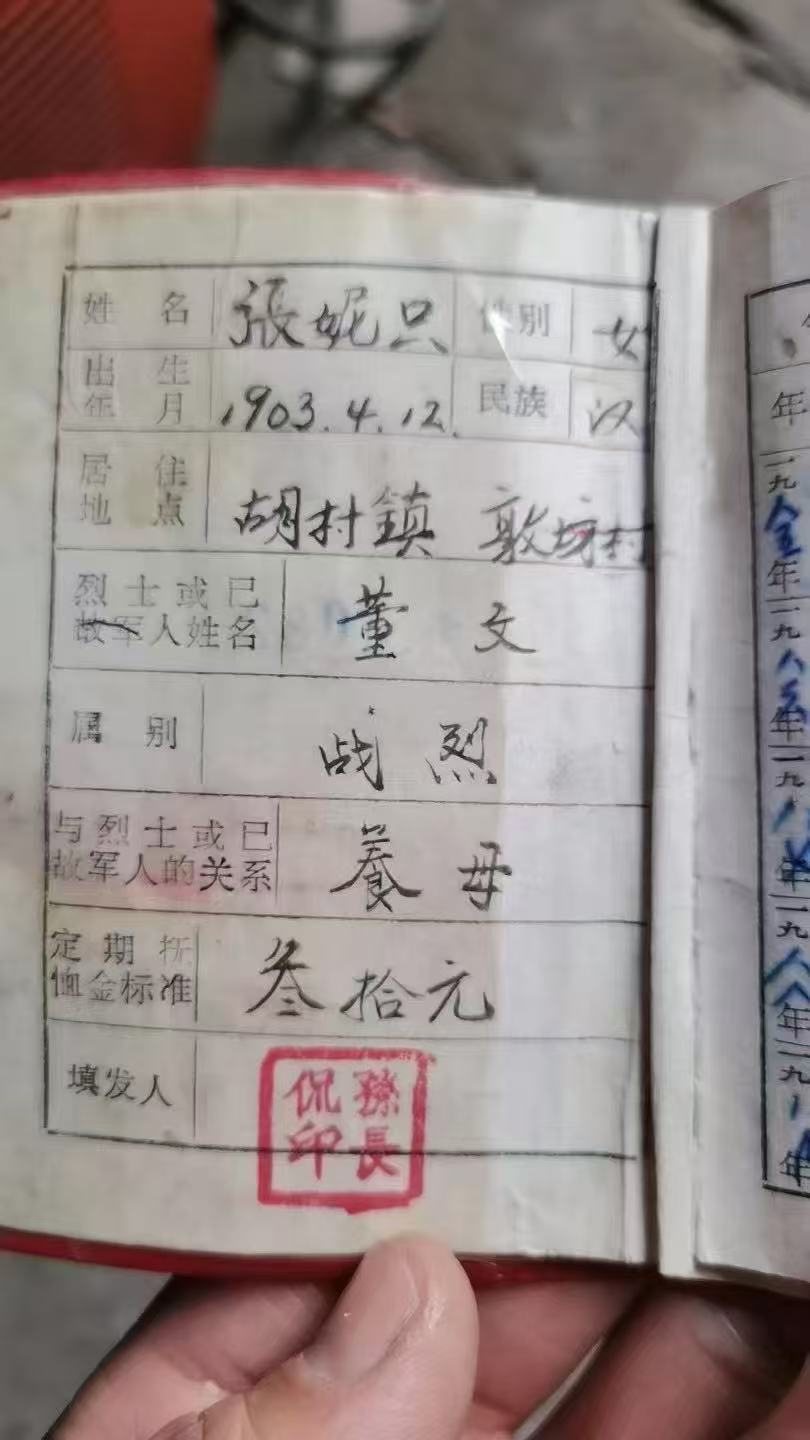 姓名 張妮只 性别 女
出生年月 1903.4.12. 民族 汉
居住地点 胡村鎮 敦坊村
烈士或已故军人姓名 董文
属别 战烈
与烈士或已故军人的关系 養母
定期抚恤金标准 叁拾元
填发人 孫長侃印
年
一九
年一九八
年一九八
年一九八八
年一九
年